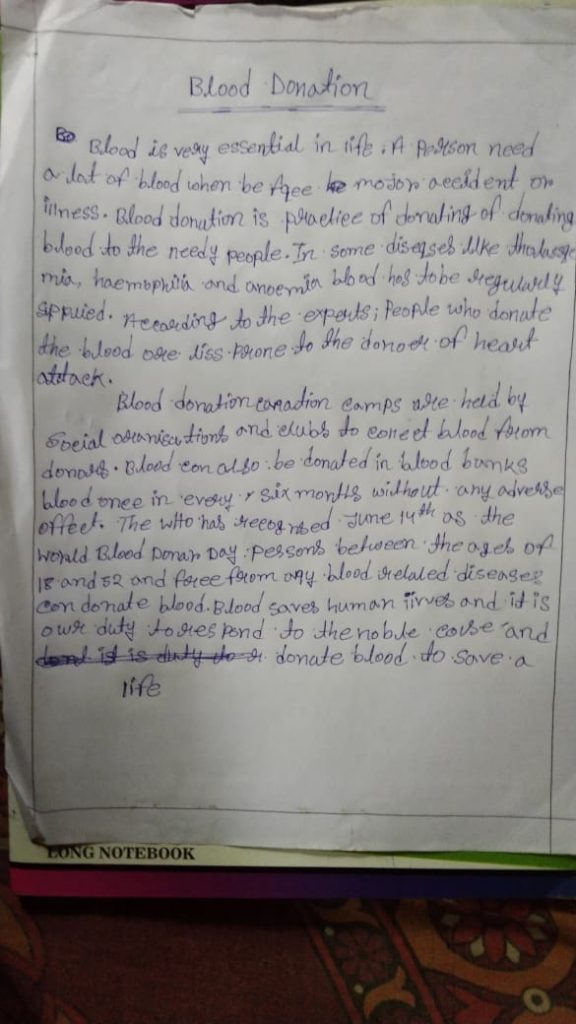 Blood Donation
Blood is very essential in life. A Person need
a lot of blood when be face major accident or
illness. Blood donation is practice of donating of donating
blood to the needy people. In some diseases like thalasse
mia, haemophilia and anoemia blood has to be regularly
appuied. According to the experts; People who donate
the blood are liss prone to the donoer of heart
attack.
Blood donation canadion camps are held by
Social oranisations and clubs to conect blood from
donars. Blood can also be donated in blood banks
blood once in every six months without any adverse
effect. The WHO has recognised June 14th as the
World Blood Donar Day. Pessons between the ages of
18 and 52 and foree from any blood related diseases
can donate blood. Blood saves human lives and it is
owr duty to respond to the noble couse and
donate blood to save a
life
LONG NOTEBOOK